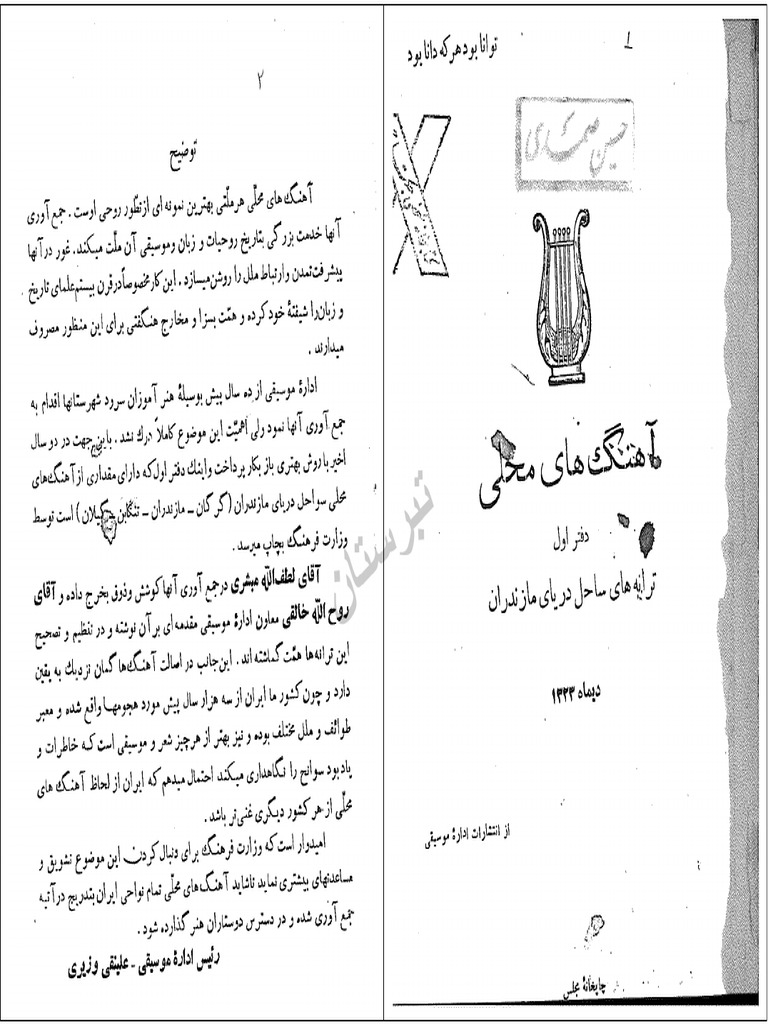 1
توانا بود هر که دانا بود
حسین صمدی
آهنگ های محلی
دفتر اول
ترانه های ساحل دریای مازندران
دیماه ۱۳۲۳
از انتشارات ادارهٔ موسیقی
چاپخانهٔ مجلس
۲
توضیح
آهنگ های محلّی هر ملّتی بهترین نمونه ای از تطوّر روحی اوست . جمع آوری
آنها خدمت بزرگی بتاریخ روحیات و زبان و موسیقی آن ملّت میکند . غور در آنها
پیشرفت تمدن و ارتباط ملل را روشن میسازد . این کار مخصوصاً در قرن بیستم علمای تاریخ
و زبان را شیفتهٔ خود کرده و همّت بسزا و مخارج هنگفتی برای این منظور مصروف
میدارند .
ادارهٔ موسیقی از ده سال پیش بوسیلهٔ هنر آموزان سرود شهرستانها اقدام به
جمع آوری آنها نمود ولی اهمیّت این موضوع کاملاً درك نشد . باین جهت در دو سال
اخیر با روش بهتری باز بکار پرداخت و اینك دفتر اول که دارای مقداری از آهنگ های
محلی سواحل دریای مازندران (گرگان ـ مازندران ـ تنکابن ـ گیلان) است توسط
وزارت فرهنگ بچاپ میرسد .
آقای لطف الله مبشری در جمع آوری آنها کوشش و ذوق بخرج داده و آقای
روح الله خالقی معاون ادارهٔ موسیقی مقدمه ای بر آن نوشته و در تنظیم و تصحیح
این ترانه ها همّت گماشته اند . این جانب در اصالت آهنگ ها گمان نزدیك به یقین
دارد و چون کشور ما ایران از سه هزار سال پیش مورد هجومها واقع شده و معبر
طوائف و ملل مختلف بوده و نیز بهتر از هر چیز شعر و موسیقی است که خاطرات و
یادبود سوانح را نگاهداری میکند احتمال میدهم که ایران از لحاظ آهنگ های
محلّی از هر کشور دیگری غنی تر باشد .
امیدوار است که وزارت فرهنگ برای دنبال کردن این موضوع تشویق و
مساعدتهای بیشتری نماید تا شاید آهنگ های محلّی تمام نواحی ایران بتدریج در آتیه
جمع آوری شده و در دسترس دوستاران هنر گذارده شود .
رئیس ادارهٔ موسیقی ـ علینقی وزیری
تبرستان